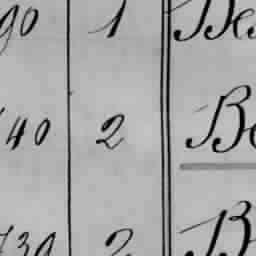 90 1 Be
40 2 Be
30 2 B